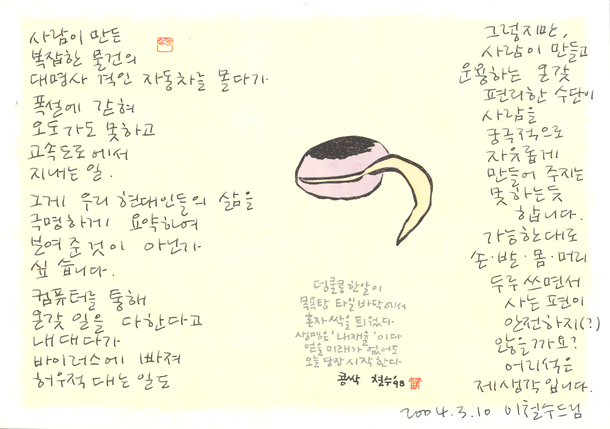 사람이 만든
복잡한 물건의
대명사 격인 자동차를 몰다가
폭설에 갇혀
오도가도 못하고
고속도로에서
지내는 일.
그게 우리 현대인들의 삶을
극명하게 요약하여
보여준 것이 아닌가
싶습니다.
컴퓨터를 통해
온갖 일을 다한다고
내대다가
바이러스에 빠져
허우적대는 일도
덩쿨콩 한알이
목욕탕 타일 바닥에서
혼자 싹을 틔웠다.
생명은 '내재율'이다
얻을 미래가 없어도
오늘 당장 시작한다.
콩싹 철수 98
그렇지만,
사람이 만들고
운용하는 온갖
편리한 수단이
사람을
궁극적으로
자유롭게
만들어 주지는
못하는듯
합니다.
가능한대로
손·발·몸·머리
두루 쓰면서
사는 편이
안전하지(?)
않을까요?
어리석은
제생각입니다.
2004.3.10 이철수드림